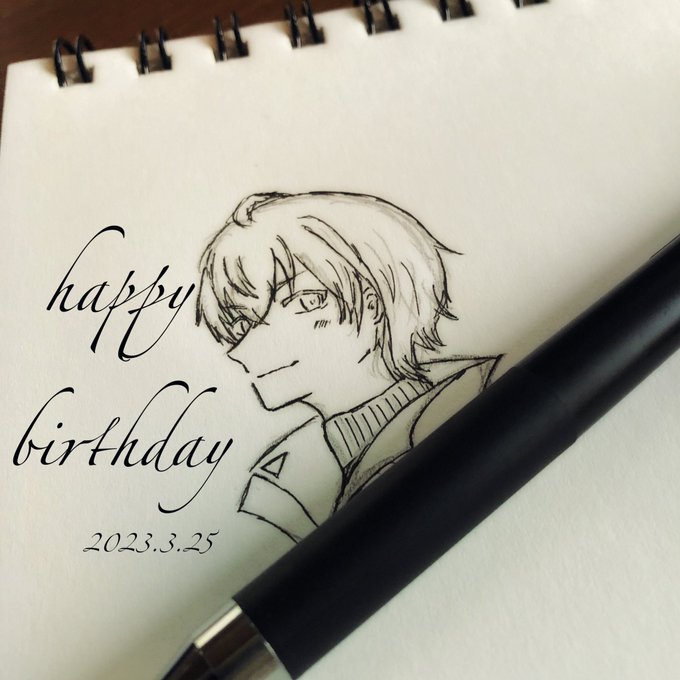 happy
birthday
2023.3.25